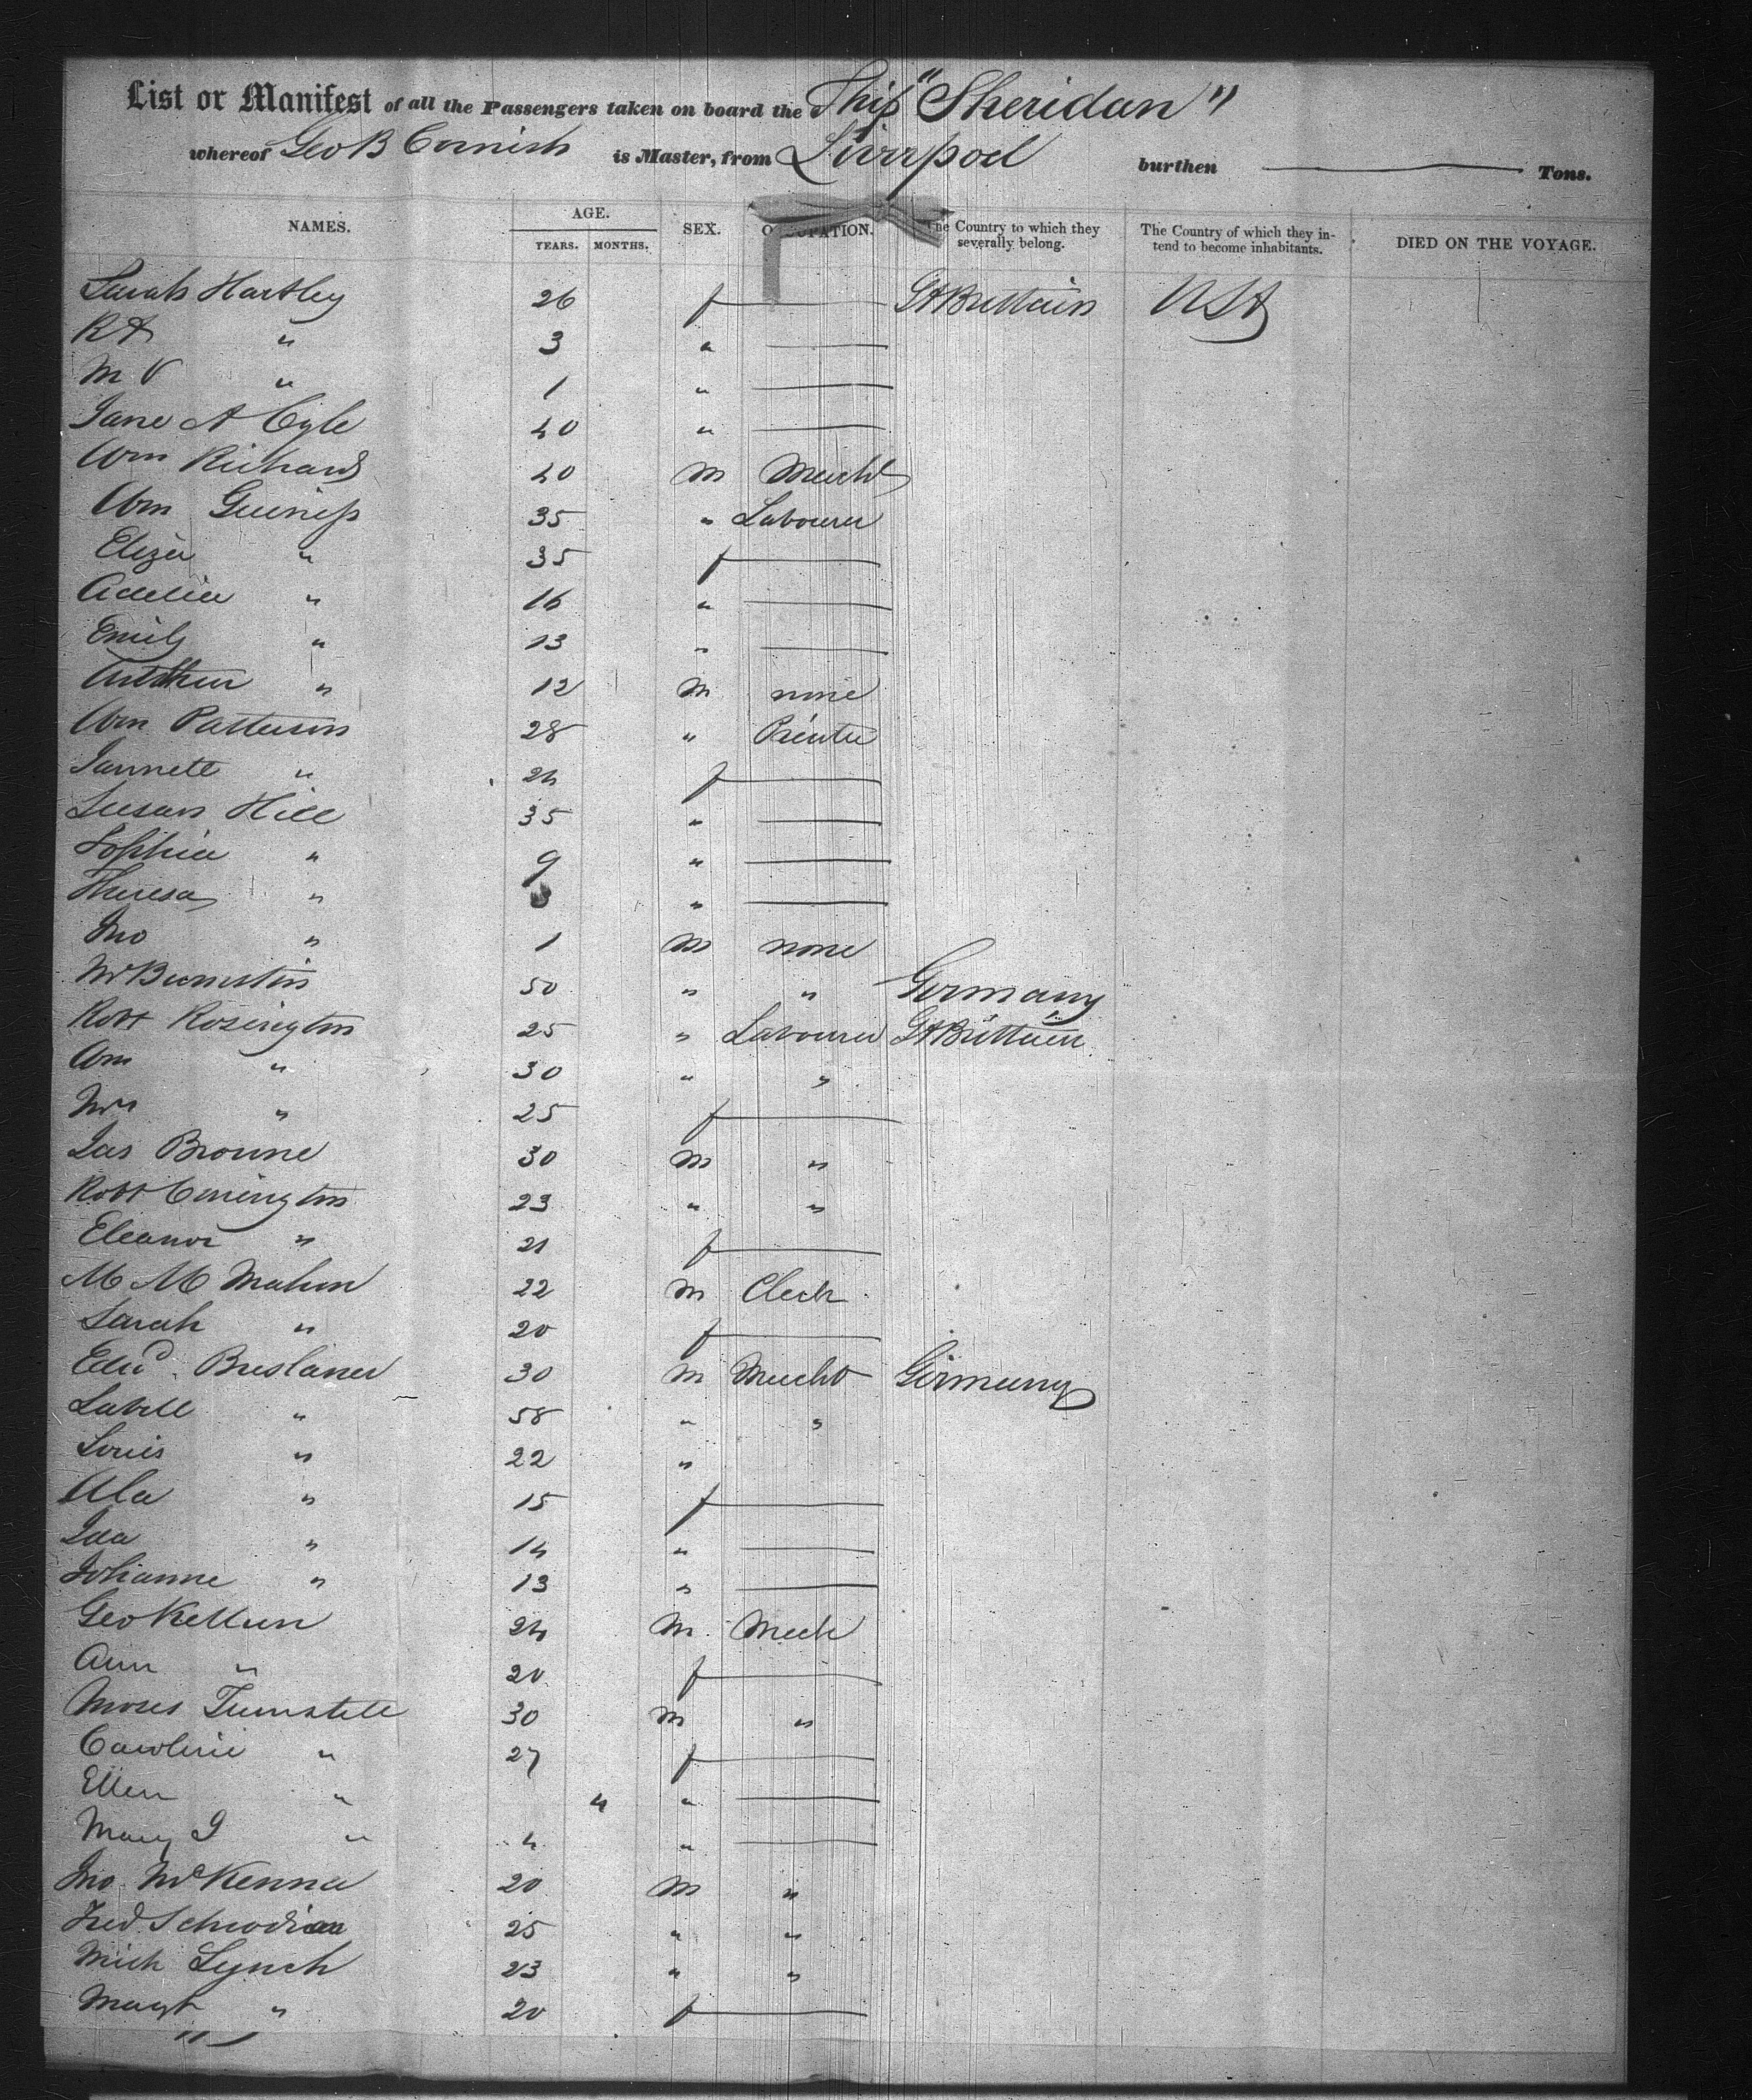 List or Manifest of all the Passengers taken on board the Ship "Sheridan"
whereof Geo B Cornish is Master, from Liverpool burthen ——— Tons.
NAMES. AGE. SEX. OCCUPATION. The Country to which they severally belong. The Country of which they intend to become inhabitants. DIED ON THE VOYAGE.
YEARS. MONTHS.
Sarah Hartley 26 f — Gt Brittain USA
R A " 3 " —
M V " 1 " —
Jane A Cyle 40 " —
Wm Richards 40 m Mercht
Wm Guiness 35 " Labourer
Eliza " 35 f —
Adelia " 16 " —
Emily " 13 " —
Arthur " 12 m none
Wm Patterson 28 " Printer
Jannett " 24 f —
Susan Hill 35 " —
Sophia " 9 " —
Theresa " 3 " —
Jno " 1 m none
Mr 50 " " Germany
Robt Rosington 25 " Labourer Gt Brittain
Wm " 30 " "
Mrs " 25 f —
Jas Browne 30 m "
Robt Conington 23 " "
Eleanor " 21 f —
M Mc Mahon 22 m Clerk
Sarah " 20 f —
Edwd. Breslauer 30 m Mercht Germany
" 58 " "
Louis " 22 "
Ula " 15 f —
Ida " 14 " —
Johanne " 13 " —
Geo Kellun 24 m Mech
Ann " 20 f —
Moses Tunstell 30 m "
Caroline " 27 f —
Ellen " 4 " —
Mary J " 4 " —
Jno. McKenna 20 m "
Fred 25 " "
Mich Lynch 23 " "
Margt " 20 f —